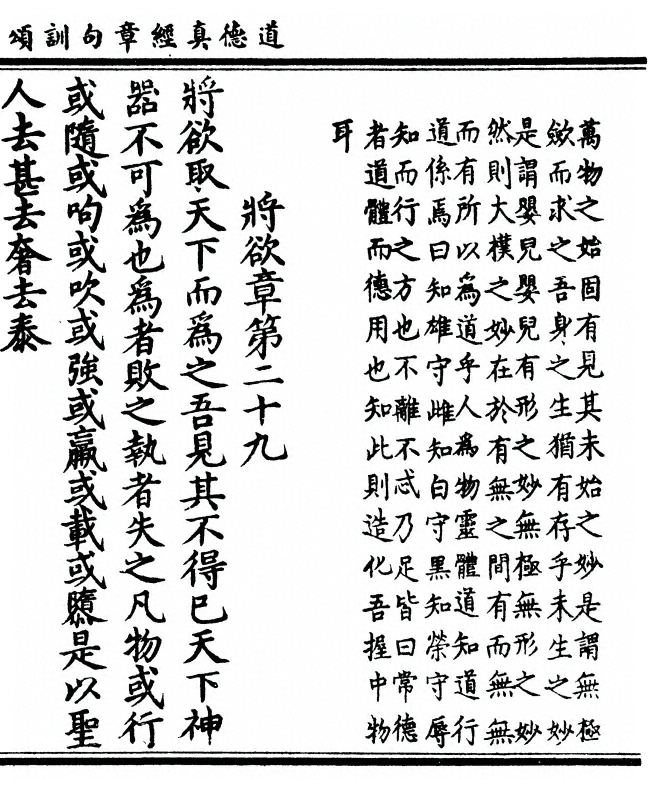 道德真經章句訓頌
萬物之始固有見其未始之妙是謂無極
斂而求之吾身之生猶有存乎未生之妙
是謂嬰兒嬰兒有形之妙無極無形之妙
然則大樸之妙在於有無之間有而無無
而有所以爲道乎人爲物靈體道知道行
道係焉曰知雄守雌知白守黑知榮守辱
知而行之方也不離不忒乃足皆曰常德
者道體而德用也知此則造化吾握中物
耳
將欲章第二十九
將欲取天下而爲之吾見其不得已天下神
器不可爲也爲者敗之執者失之凡物或行
或隨或呴或吹或強或羸或載或隳是以聖
人去甚去奢去泰